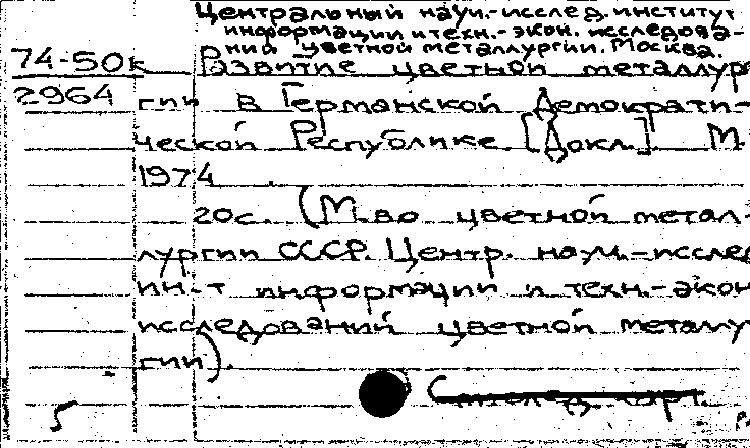 Центральный науч.-исслед. институт
информации и техн.-экон. исследова-
ний цветной металлургии. Москва.
74-50к Развитие цветной металлур-
2964 гии в Германской Демократи-
ческой Республике. [Докл.] М
1974
20с. (М-во цветной метал-
лургии СССР. Центр. науч.-исслед
ин-т информации и техн.-экон
исследований цветной металлу
ргии).
5